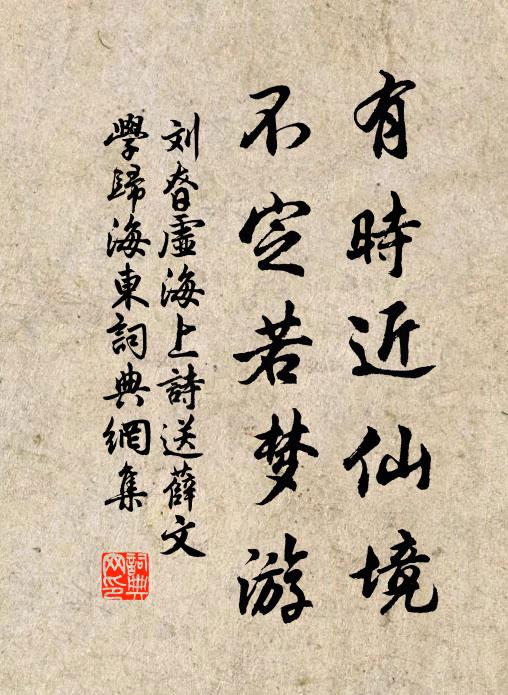 有時近仙境
不定若梦游
刘眘虛海上詩送薛文
學歸海東詞典網集
詞典
网印